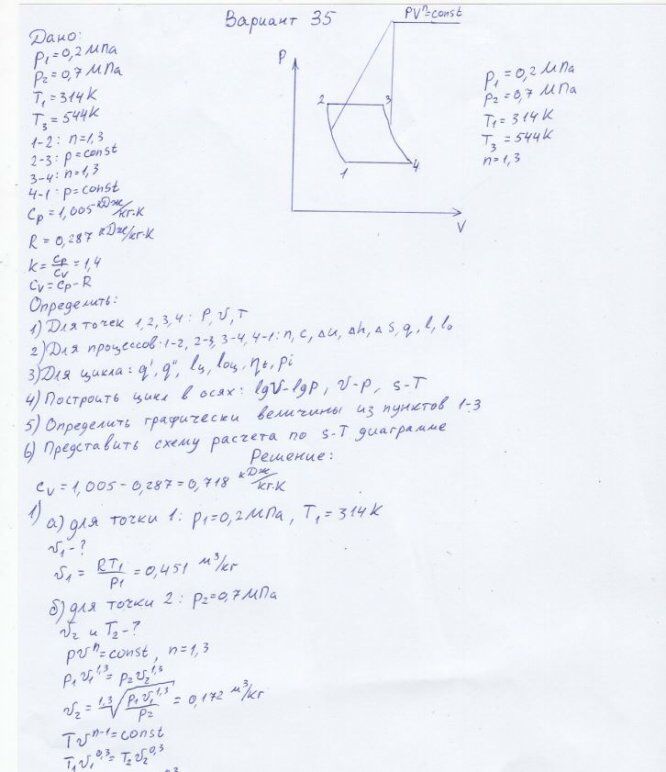 Вариант 35
Дано:
p₁=0,2 МПа
p₂=0,7 МПа
T₁=314K
T₃=544K
1-2: n=1,3
2-3: p=const
3-4: n=1,3
4-1: p=const
Cp=1,005 кДж/кг·K
R=0,287 кДж/кг·K
k=Cp/Cv=1,4
Cv=Cp-R
PVⁿ=const
P
2
3
1
4
V
p₁=0,2 МПа
p₂=0,7 МПа
T₁=314K
T₃=544K
n=1,3
Определить:
1) Для точек 1,2,3,4: P, v, T
2) Для процессов: 1-2, 2-3, 3-4, 4-1: n, c, Δu, Δh, Δs, q, l, l₀
3) Для цикла: q', q'', lц, l₀ц, ηt, pi
4) Построить цикл в осях: lgv-lgp, v-p, s-T
5) Определить графически величины из пунктов 1-3
6) Представить схему расчета по s-T диаграмме
Решение:
Cv=1,005-0,287=0,718 кДж/кг·K
1) а) для точки 1: p₁=0,2 МПа, T₁=314K
v₁-?
v₁=RT₁/p₁=0,451 м³/кг
б) для точки 2: p₂=0,7 МПа
v₂ и T₂-?
pvⁿ=const, n=1,3
p₁v₁^1,3=p₂v₂^1,3
v₂=^1,3√(p₁v₁^1,3/p₂)=0,172 м³/кг
Tvⁿ⁻¹=const
T₁v₁^0,3=T₂v₂^0,3